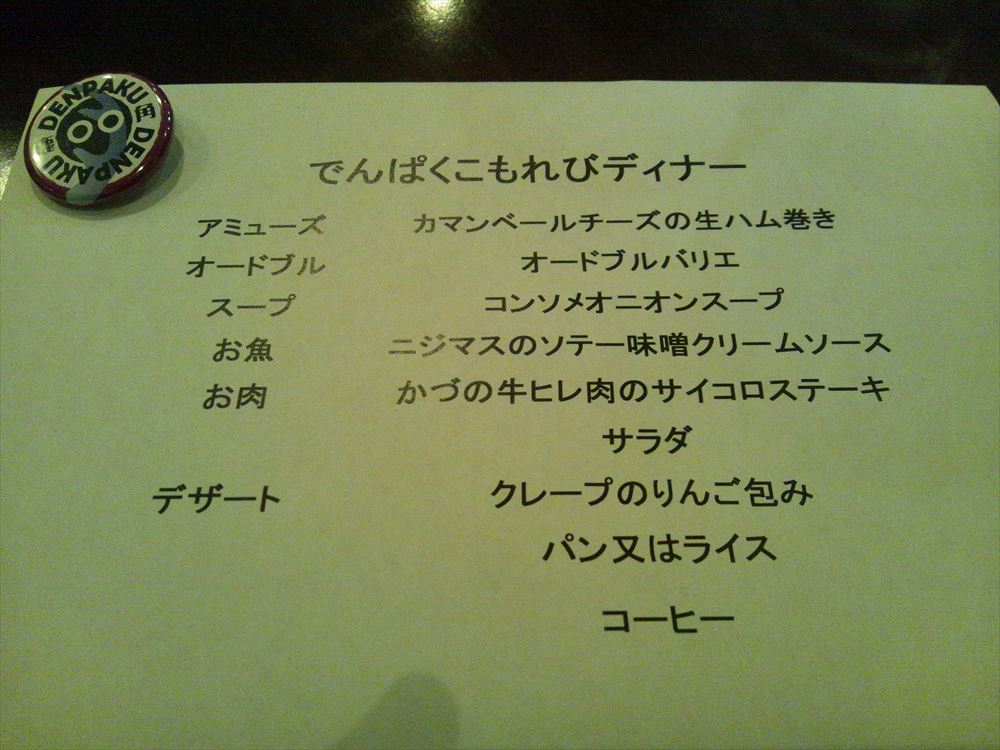 DENPAKU
DENPAKU
でんぱくこもれびディナー
アミューズ カマンベールチーズの生ハム巻き
オードブル オードブルバリエ
スープ コンソメオニオンスープ
お魚 ニジマスのソテー味噌クリームソース
お肉 かづの牛ヒレ肉のサイコロステーキ
サラダ
デザート クレープのりんご包み
パン又はライス
コーヒー